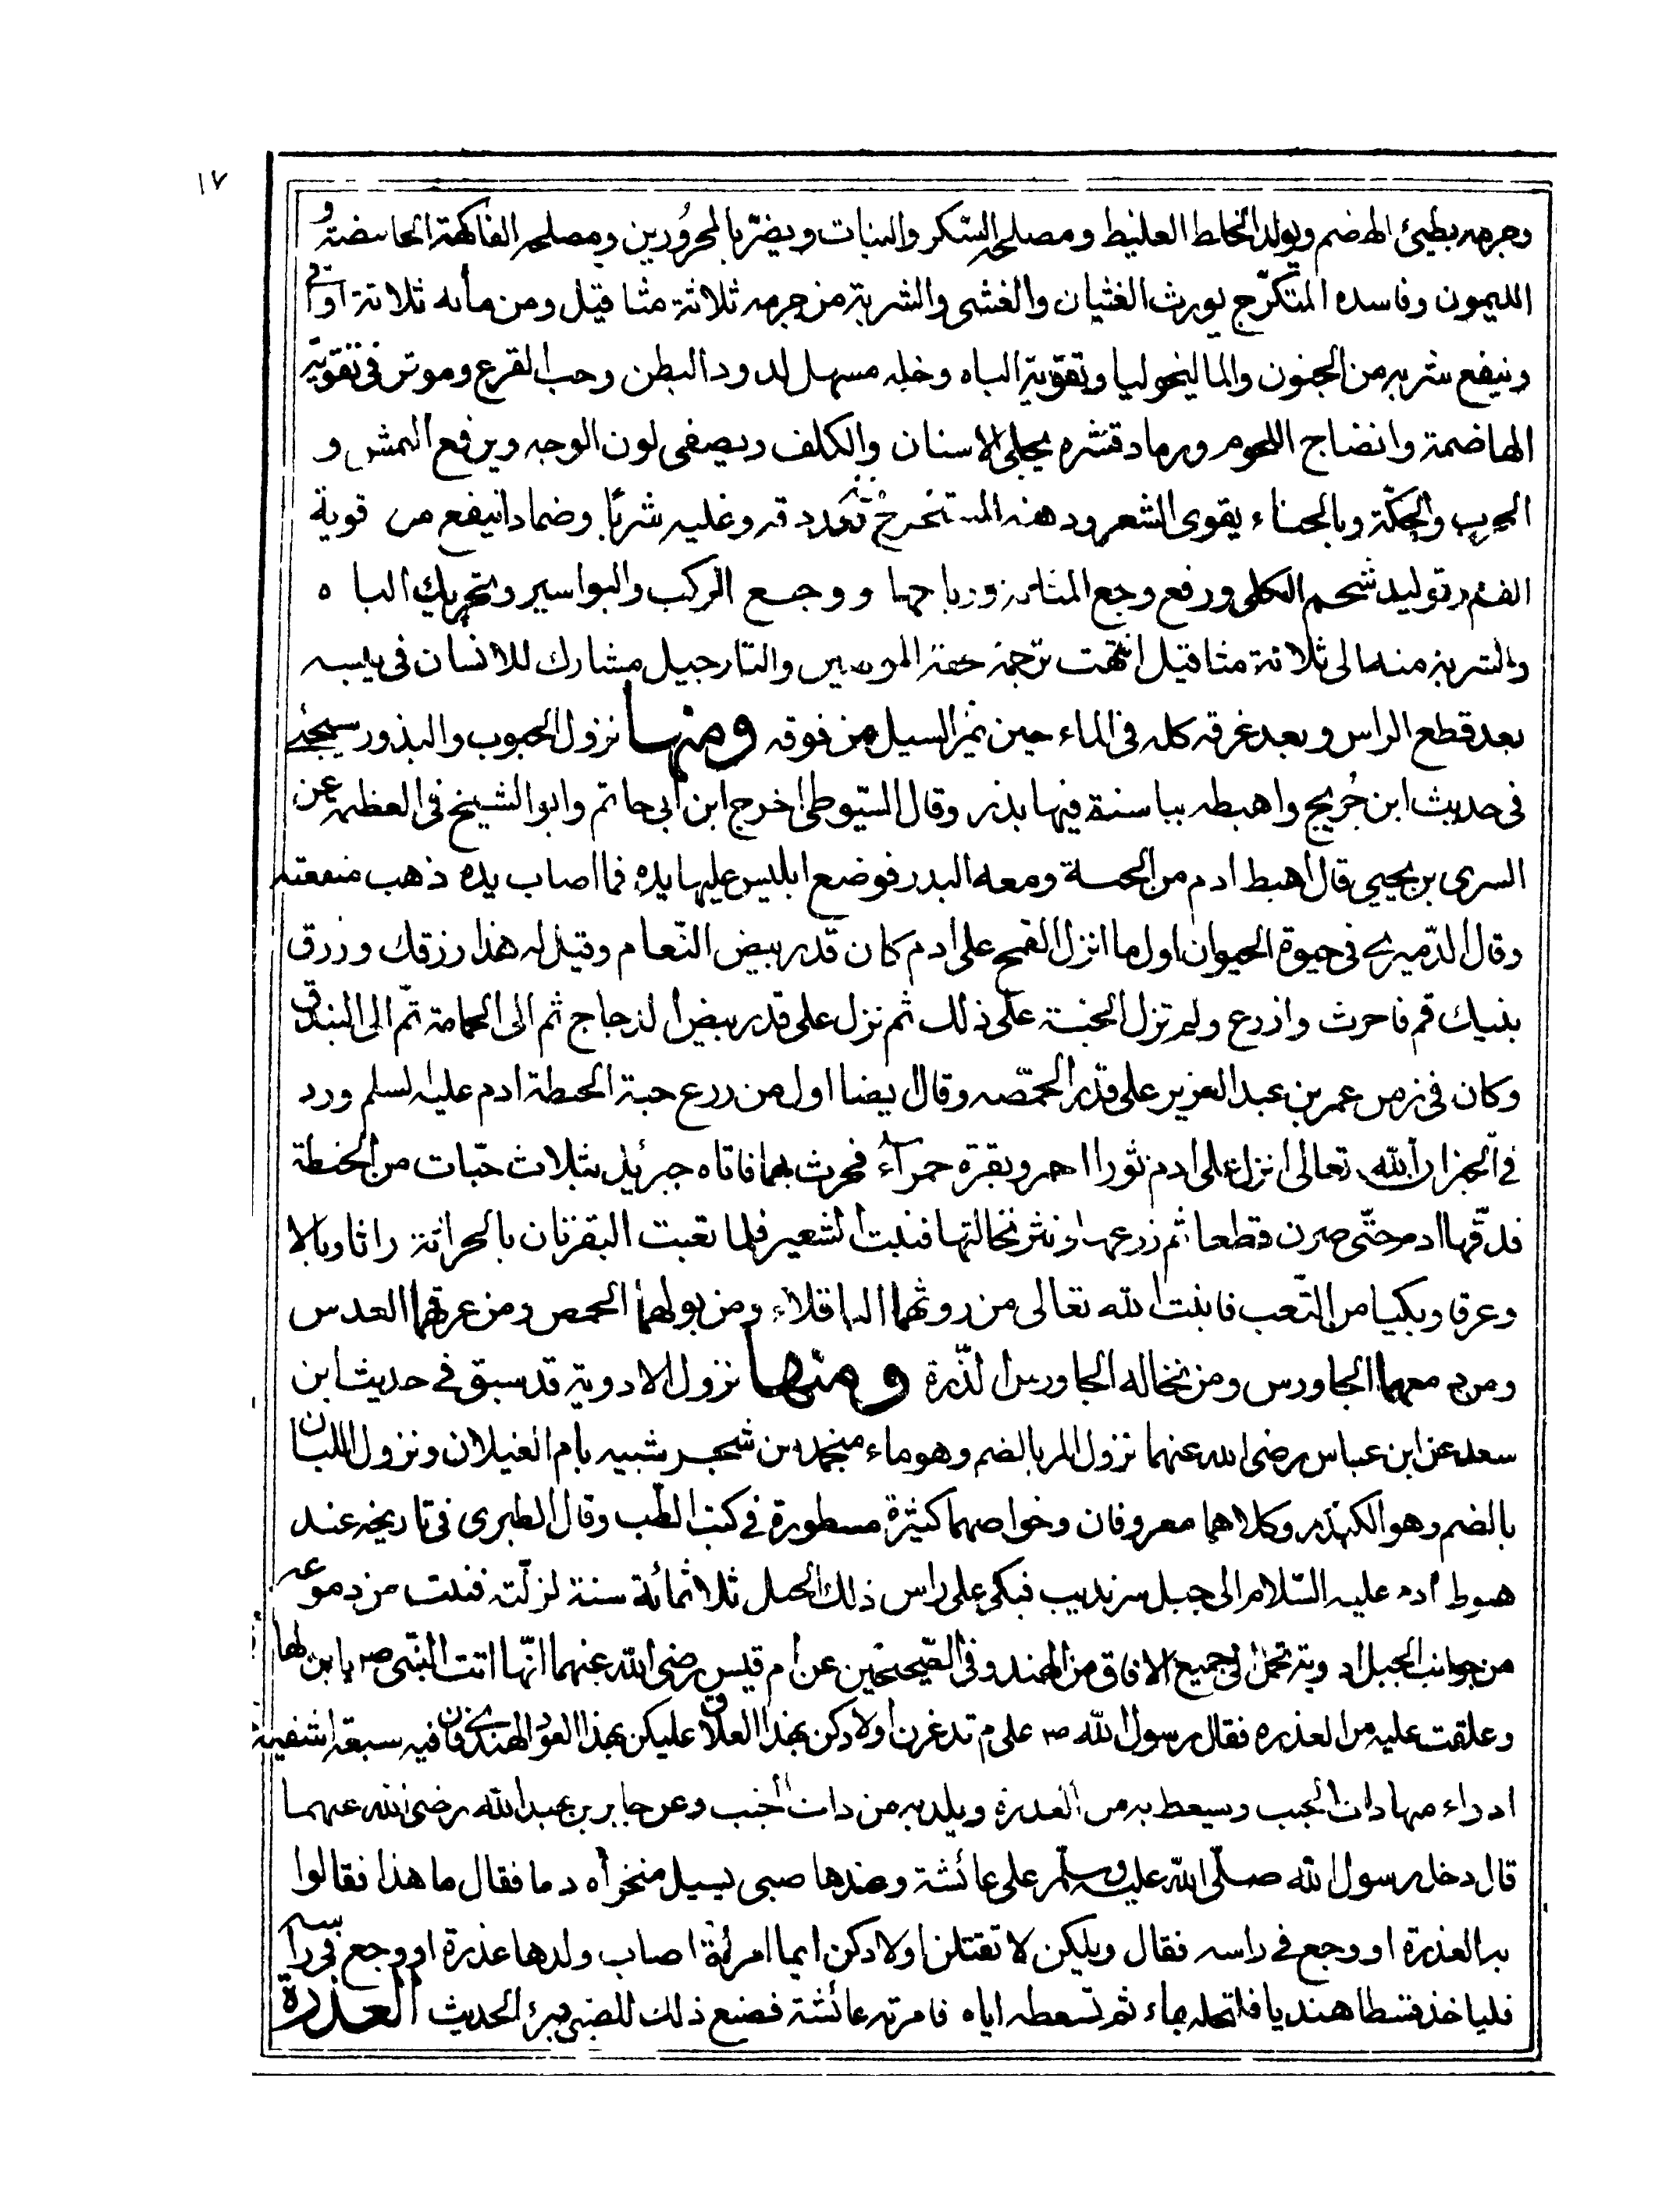 ١٧
وجرمه بطيئ الهضم ويولد الخلط الغليط ومصلحه السّكر والنبات ويضرّ بالمحرُورين ومصلحه الفاكهة الحامضة و
الليمون وفاسده المتكرّج يورث الغثيان والغشى والشربة من جرمه ثلاثة مثاقيل ومن مأئه ثلاثة اواقى
وينفع شربه من الجنون والماليخوليا وتقوّية الباه وخله مسهل لدود البطن وحب القرع وموثر فى تقوية
الهاضمة وانضاج اللحوم ورماد قشره يجلى الاسنان والكلف ويصفى لون الوجه ويرفع النمش و
الجرب والحكّة وبالحناء يقوى الشعر ودهنه المستخرج وغليه شربًا وضمادا ينفع من قوية
الفم وتوليد شحم الكلى ورفع وجع المثانة ورياحها ووجع الركب والبواسير وتحريك الباه
والشربة منه الى ثلاثة مثاقيل انتهت ترجمة تحفة المومنين والنارجيل مشارك للانسان فى يبسه
بعد قطع الراس وبعد غرقه كله فى الماء حين يمر السيل من فوقه ومنها نزول الحبوب والبذور سيجئ
فى حديث ابن جُريج واهبطه بباسنة فيها بذر وقال السّيوطى اخرج ابن أبى حاتم وابو الشيخ فى العظمة عن
السرى بن يحيى قال اهبط ادم من الجنة ومعه البذر فوضع ابليس عليها يده فما اصاب يده ذهب منفعته
وقال الدّميرى فى حيوة الحيوان اول ما انزل القمح على ادم كان قدر بيض النّعام وقيل له هذا رزقك ورزق
بنيك قم فاحرث وازرع ولم تزل الحبة على ذلك ثم نزل على قدر بيض الدجاج ثم الى الحمامة ثمّ الى البندق
وكان فى زمن عمر بن عبد العزيز على قدر الحمّصه وقال ايضا اول من زرع حبة الحنطة ادم عليه السلم ورد
فى الخبر ان الله تعالى انزل على ادم ثورا احمر وبقرة حمرآء فحرث بهما فاتاه جبرئيل بثلاث حبّات من الحنطة
فدقّها ادم حتّى صرن قطعا ثم زرعها ونثر نخالتها فنبت الشعير فلما تعبت البقرتان بالحراثة راثا وبالا
وعرقا وبكيا من التّعب فانبت الله تعالى من روثهما الباقلاء ومن بولهما الحمص ومن عرقهما العدس
ومن دمعهما الجاورس ومن نخاله الجاورس الذّرة ومنها نزول الادوية قد سبق فى حديث ابن
سعد عن ابن عباس رضى الله عنهما نزول المر بالضم وهو ماء منجمد من شجر شبيه بام الغيلان ونزول اللبان
بالضم وهو الكندر وكلاهما معروفان وخواصهما كثيرة مسطورة فى كتب الطّب وقال الطبرى فى تاريخه عند
هبوط أدم عليه السّلام الى جبل سرنديب فبكى على راس ذلك الجبل ثلاثمائة سنة لزلّته فنبت من دموعه
من جوانب الجبل ادوية تحمل الى جميع الافاق من الهند وفى الصّحيحين عن ام قيس رضى الله عنهما انّها اتت النّبى صم بابن لها
وعلقت عليه من العذره فقال رسول الله صم على م تدغرن اولادكن بهذا العلاق عليكن بهذا العود الهندى فان فيه سبعة اشفية
ادواء منها ذات الجنب ويسعط به من العذرة ويلد به من ذات الجنب وعن جابر بن عبد الله رضى الله عنهما
قال دخل رسول الله صلّى الله عليه وسلّم على عائشة وعندها صبى يسيل منخرأه دما فقال ما هذا فقالوا
به العذرة او وجع فى راسه فقال ويلكن لا تقتلن اولادكن ايما امرأة اصاب ولدها عذرة او وجع فى راسه
فلياخذ قسطا هنديا فلتحله بماء ثم تسعطه اياه فامرته عائشة فصنع ذلك للصبى فبرئ الحديث العذرة